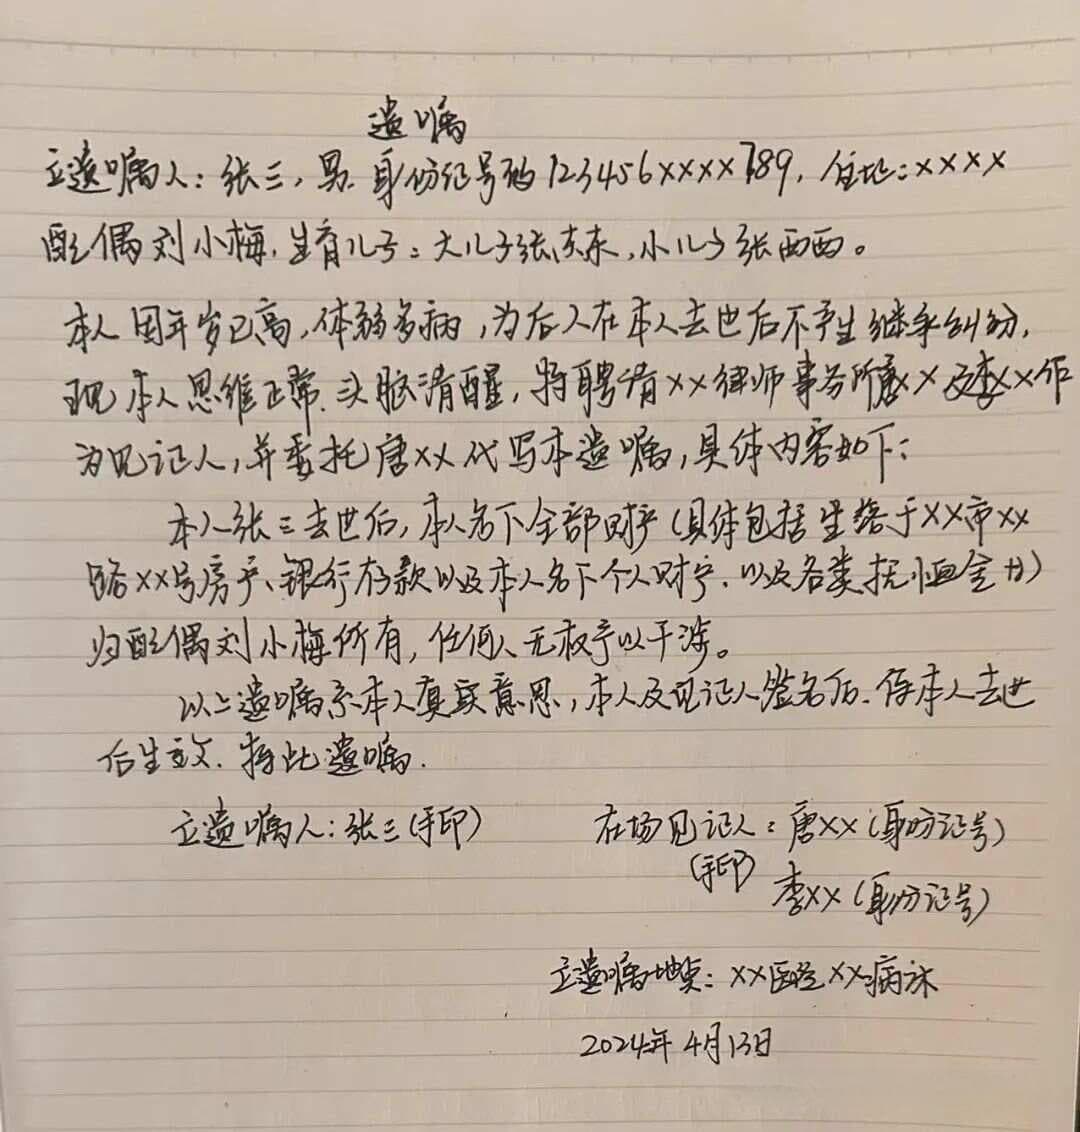 遗嘱
立遗嘱人：张三，男．身份证号码123456××××789，住址：××××
配偶刘小梅，生育儿子：大儿子张东东，小儿子张西西。
本人因年岁已高，体弱多病，为后人在本人去世后不产生继承纠纷，
现本人思维正常．头脑清醒，特聘请××律师事务所唐××及李××作
为见证人，并委托唐××代写本遗嘱，具体内容如下：
本人张三去世后，本人名下全部财产（具体包括坐落于××市××
路××号房产、银行存款以及本人名下个人财产．以及各类抚恤金）
归配偶刘小梅所有，任何人无权予以干涉。
以上遗嘱系本人真实意思，本人及见证人签名后．待本人去世
后生效．特此遗嘱．
立遗嘱人：张三（手印）
在场见证人：唐××（身份证号）
（手印）
李××（身份证号）
立遗嘱地点：××医院××病床
2024年4月13日